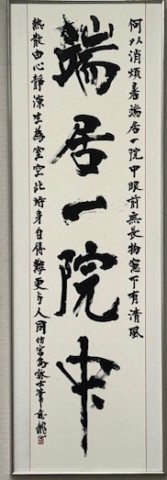 何以消煩暑端居一院中眼前無長物窓下有清風
端居一院中
熱散由心静涼生為室空此時身自得難更与人同